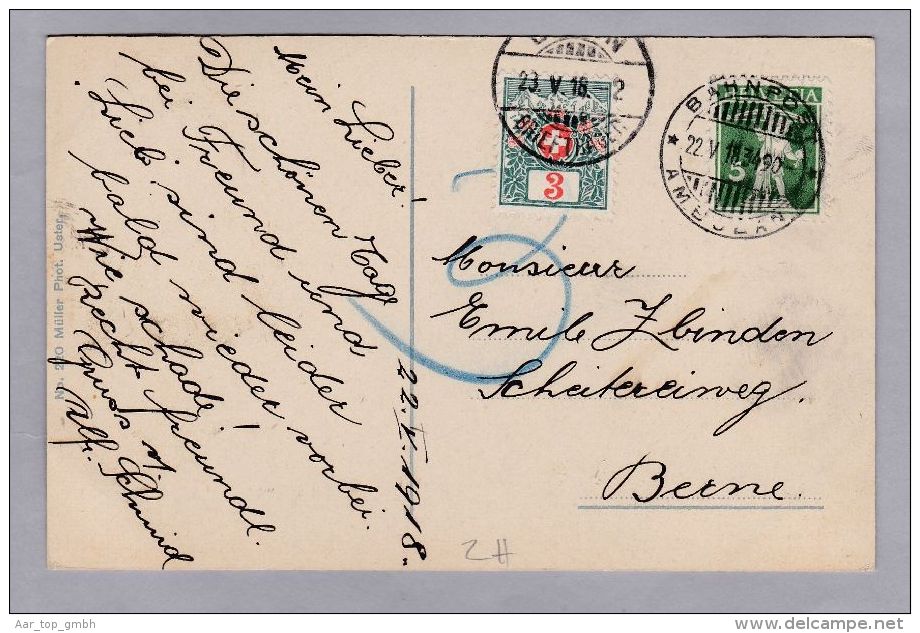 Mein Lieber!
Die schönen Tage
bei Freund und
Lieb sind leider vorbei.
bald wieder!
Wie schade!
Recht freundl.
Gruss v.
Alf. Schmid
22.V.1918.
No. 220 Müller Phot. Uster.
23.V.18. 2
BRIEFTRÄGER
3
BAHNPOST
22.V.18
AMBULANT
5
Monsieur
Emile Zbinden
Scheitereiweg
Berne.
Aar_top_gmbh
www.delcampe.net